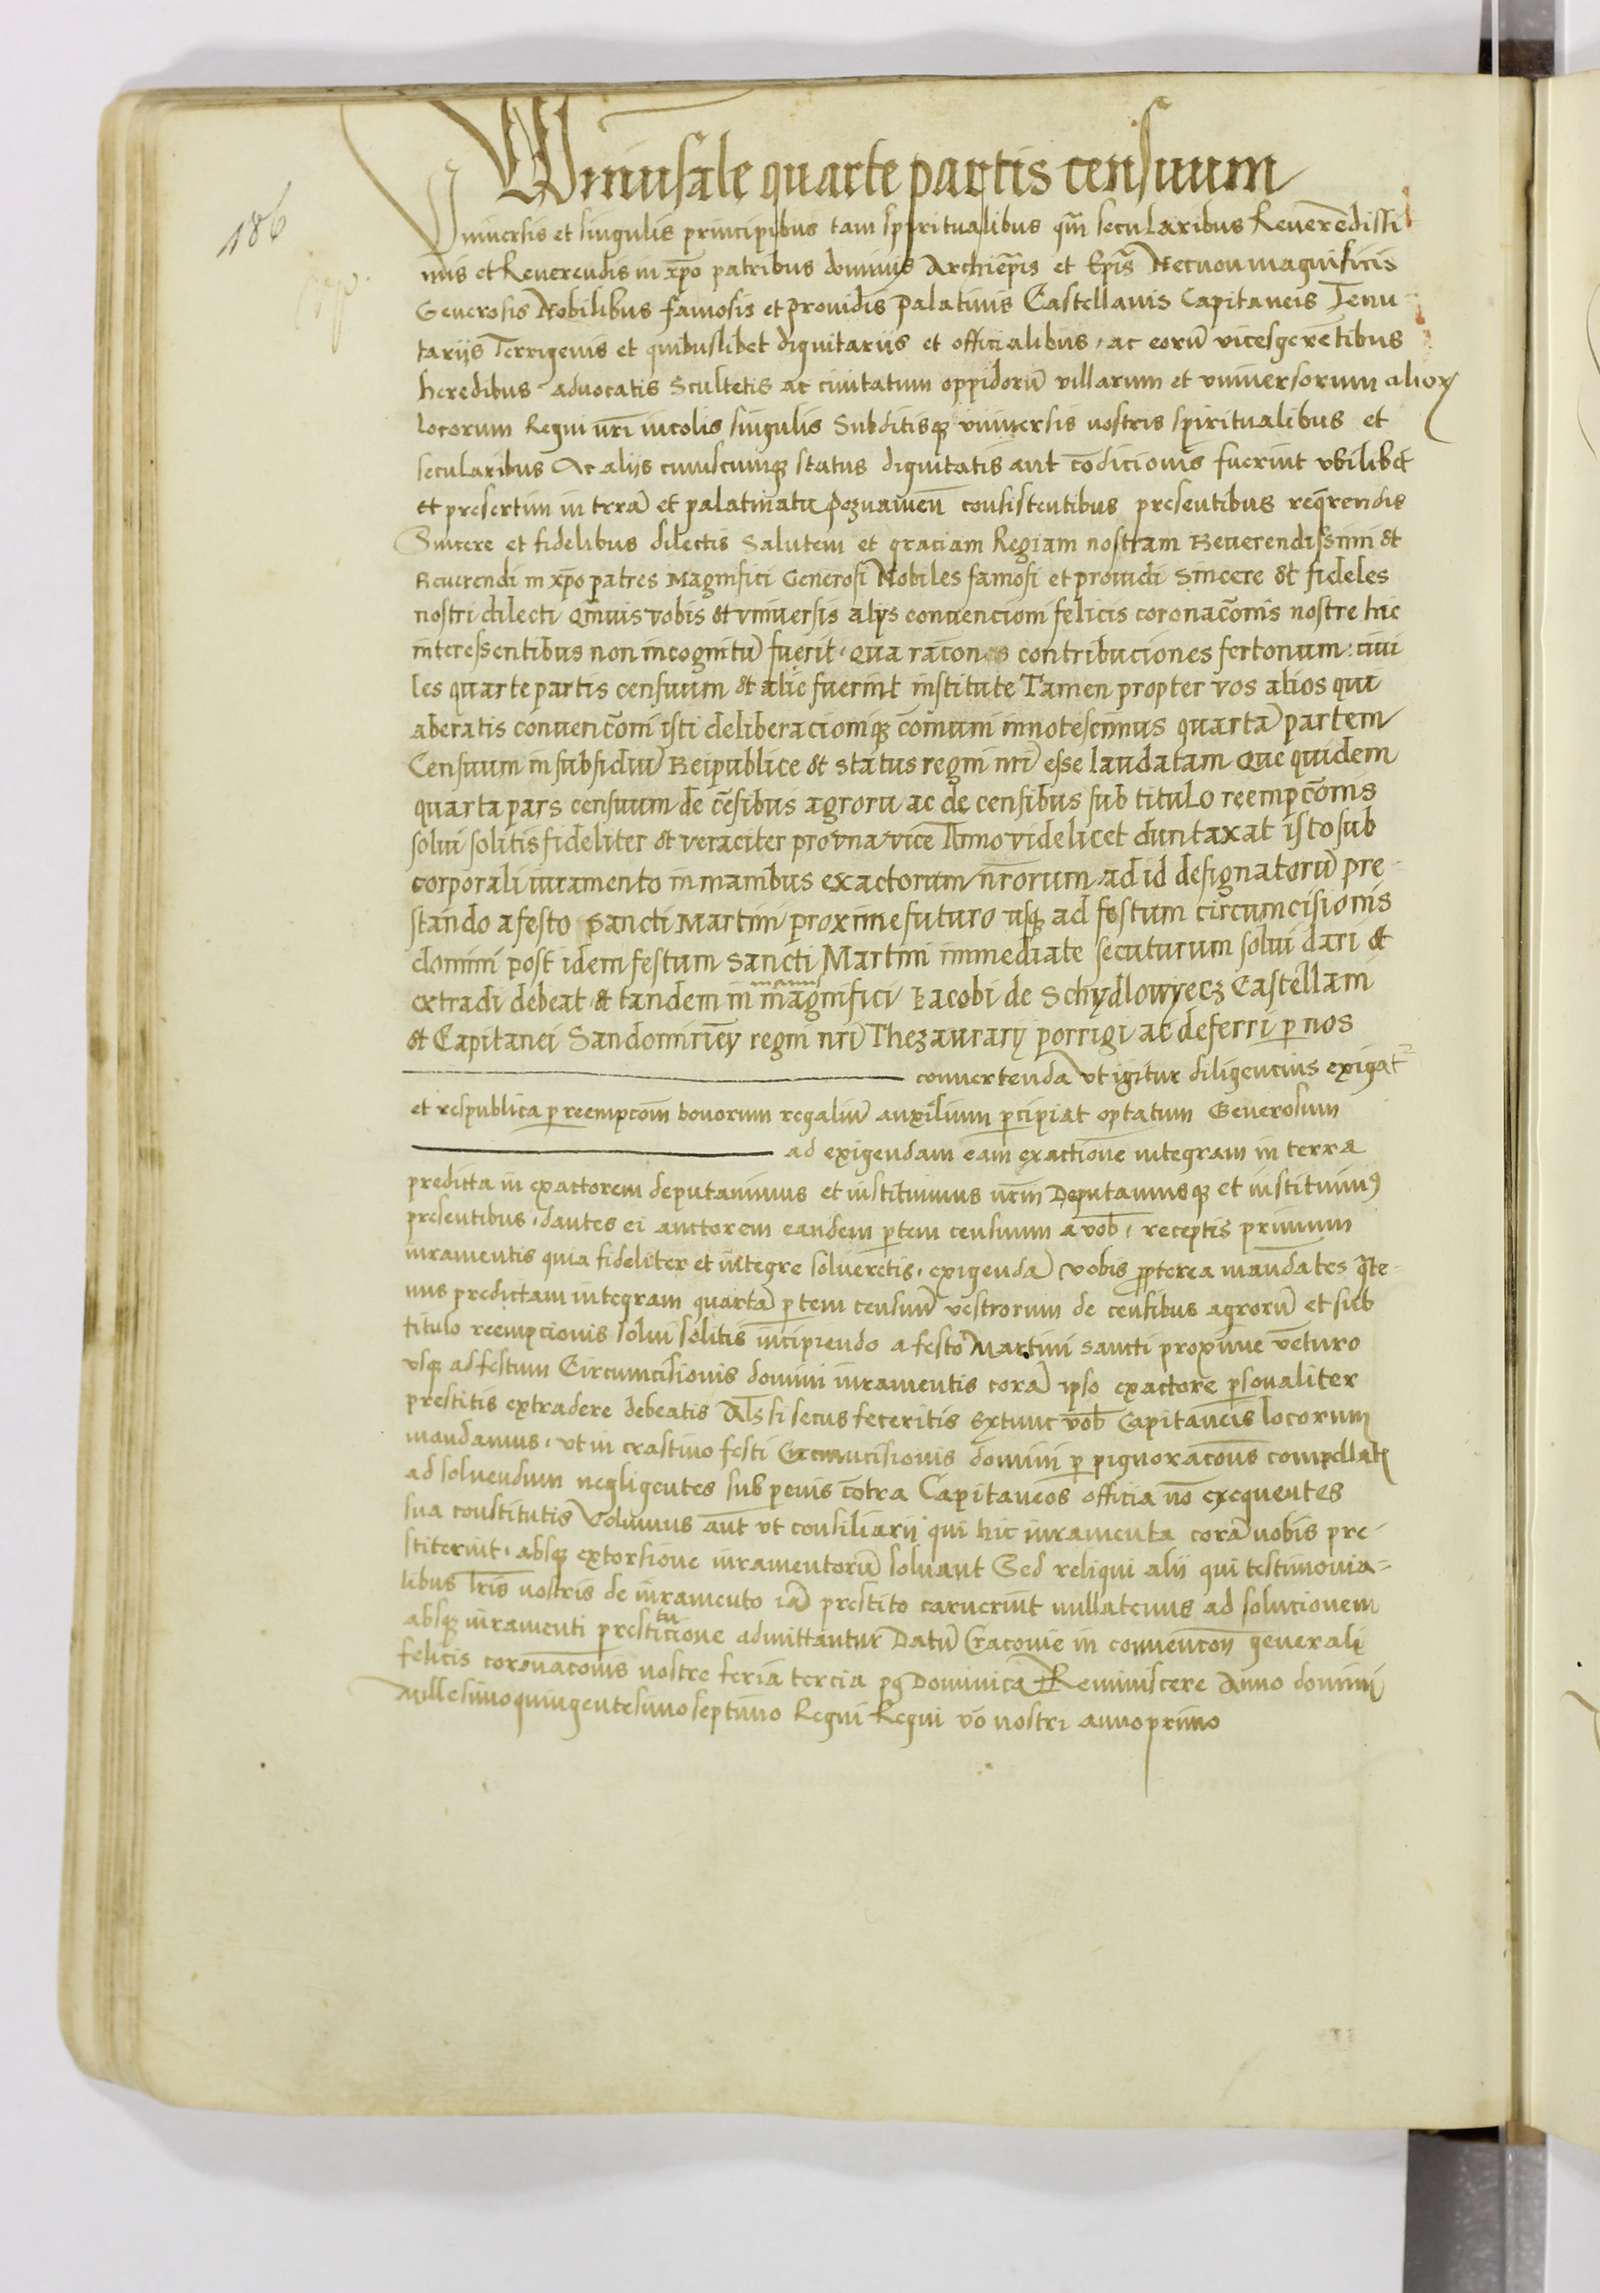 Vniuersale quarte partis censuum
186
Vniuersis et singulis principibus tam spiritualibus qm̄ secularibus Reuerēdissi
mis et Reuerendis in xp̄o patribus dominis Archiep̄is et Ep̄is Necnon magnificis
Generosis Nobilibus famosis et prouidis palatinis Castellanis Capitaneis Tenu
tarijs Terrigenis et quibuslibet dignitarijs et officialibus, ac eorū vicesgerētibus
heredibus aduocatis Scultetis ac ciuitatum oppidorū villarum et vniuersorum alioꝝ
locorum Regni nr̄i incolis singulis Subditisqꝫ vniuersis nostris spiritualibus et
secularibus Ac alijs cuiuscumqꝫ status dignitatis aut cōdicionis fuerint vbilibet
et presertim in terra et palatinatu Poznanien̄ consistentibus presentibus reqr̄endis
Sincere et fidelibus dilectis Salutem et graciam Regiam nostram Reuerendissimi et
Reuerendi in xp̄o patres Magnifici Generosi Nobiles famosi et prouidi Sincere et fideles
nostri dilecti Qm̄uis vobis et vniuersis alys conuencioni felicis coronac̄onis nostre hic
interessentibus non incognitū fuerit, qua racione contribuciones fertonum: ciui
les quarte partis censuum et alie fuerint institute Tamen propter vos alios qui
aberatis conuenc̄oni isti deliberacioniqꝫ cōmuni innotescimus quartā partem
Censuum in subsidiū Reipublice et status regni nr̄i esse laudatam Que quidem
quarta pars censuum de cēsibus agrorū ac de censibus sub titulo reempc̄onis
solui solitis fideliter et veraciter pro vna vice Anno videlicet duntaxat isto sub
corporali iuramento in manibus exactorum nr̄orum ad id designatorū pre
stando a festo Sancti Martini proxime futuro usqꝫ ad festum circumcisionis
domini post idem festum Sancti Martini immediate secuturum solui dari et
extradi debeat et tandem in manus magnifici Iacobi de Schydlowyecz Castellani
et Capitanei Sandomirien̄ regni nr̄i Thezaurarij porrigi ac deferri p nos
conuertenda vt igitur diligencius exigat
et respublica p reempcōm bonorum regaliū auxilium ꝑcipiat optatum Generosum
ad exigendam eam exactionē integram in terra
predicta in exactorem deputauimus et instituimus nr̄m Deputamusqꝫ et instituimꝰ
presentibus, dantes ei auctorem eandem ꝑtem censuum a vob̄, receptis primum
iuramentis quia fideliter et integre soluēretis, exigendā vobis ꝓpterea mandātes q̄te
nus predictam integram quartā ꝑtem censuū vestrorum de censibus agrorū et sub
titulo reempcionis solui solitis incipiendo a festo Martini sancti proxime vēnturo
vsqꝫ ad festum Circumcisionis domini iuramentis corā ipso exactore ꝑsonaliter
prestitis extradere debeatis Als̄ si secus feceritis Extunc vob̄ Capitaneis locorum
mandamus, vt in crastino festi Circumcisionis domini p pignorac̄ons compellatis
ad soluendum negligentes sub penis cōtra Capitaneos officia nō exequentes
sua constitutis Volumus aut̄ vt consiliarij qui hic iuramenta corā nobis pre
stiterint, absqꝫ extorsione iuramentorū soluant Sed reliqui alii qui testimonia
libus lr̄is nostris de iuramento iā prestito caruerint nullatenus ad solucionem
absqꝫ iuramenti prestitucione admittantur Datū Cracouie in conuencōn generali
felicis coronac̄onis nostre feria tercia pꝰ Dominicā Reminiscere Anno domini
Millesimoquingentesimoseptimo Regni Regni vō nostri anno primo